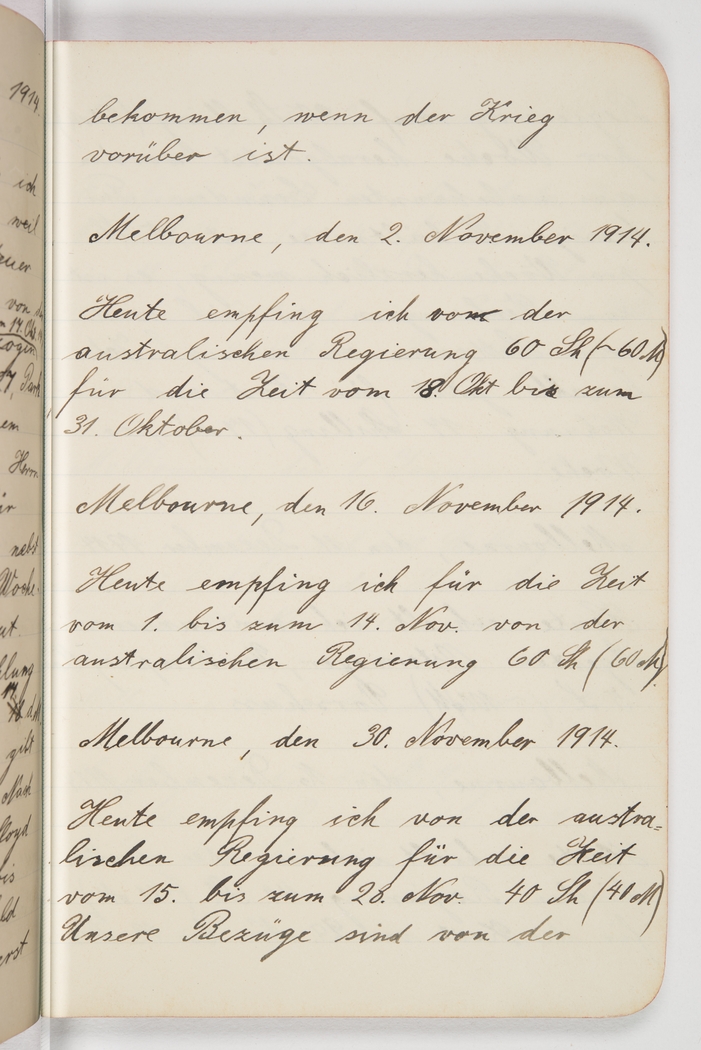 1914.
ich
weil
von
nebst
Woche
gilt
Nach
lloyd
bis
erst
bekommen, wenn der Krieg
vorüber ist.
Melbourne, den 2. November 1914.
Heute empfing ich von der
australischen Regierung 60 Sh (~60 M)
für die Zeit vom 18. Okt bis zum
31. Oktober.
Melbourne, den 16. November 1914.
Heute empfing ich für die Zeit
vom 1. bis zum 14. Nov. von der
australischen Regierung 60 Sh (60 M)
Melbourne, den 30. November 1914.
Heute empfing ich von der austra=
lischen Regierung für die Zeit
vom 15. bis zum 28. Nov. 40 Sh (40 M)
Unsere Bezüge sind von der